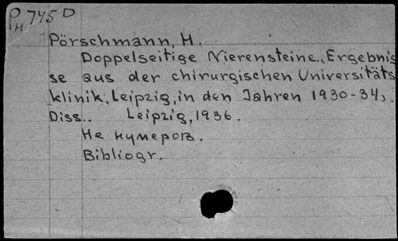 P 745 D
H
Pörschmann, H.
Doppelseitige Nierensteine., Ergebnis
se aus der chirurgischen Universitäts
klinik, Leipzig, in den Jahren 1930-34,
Diss.. Leipzig, 1936.
Не нумеров.
Bibliogr.